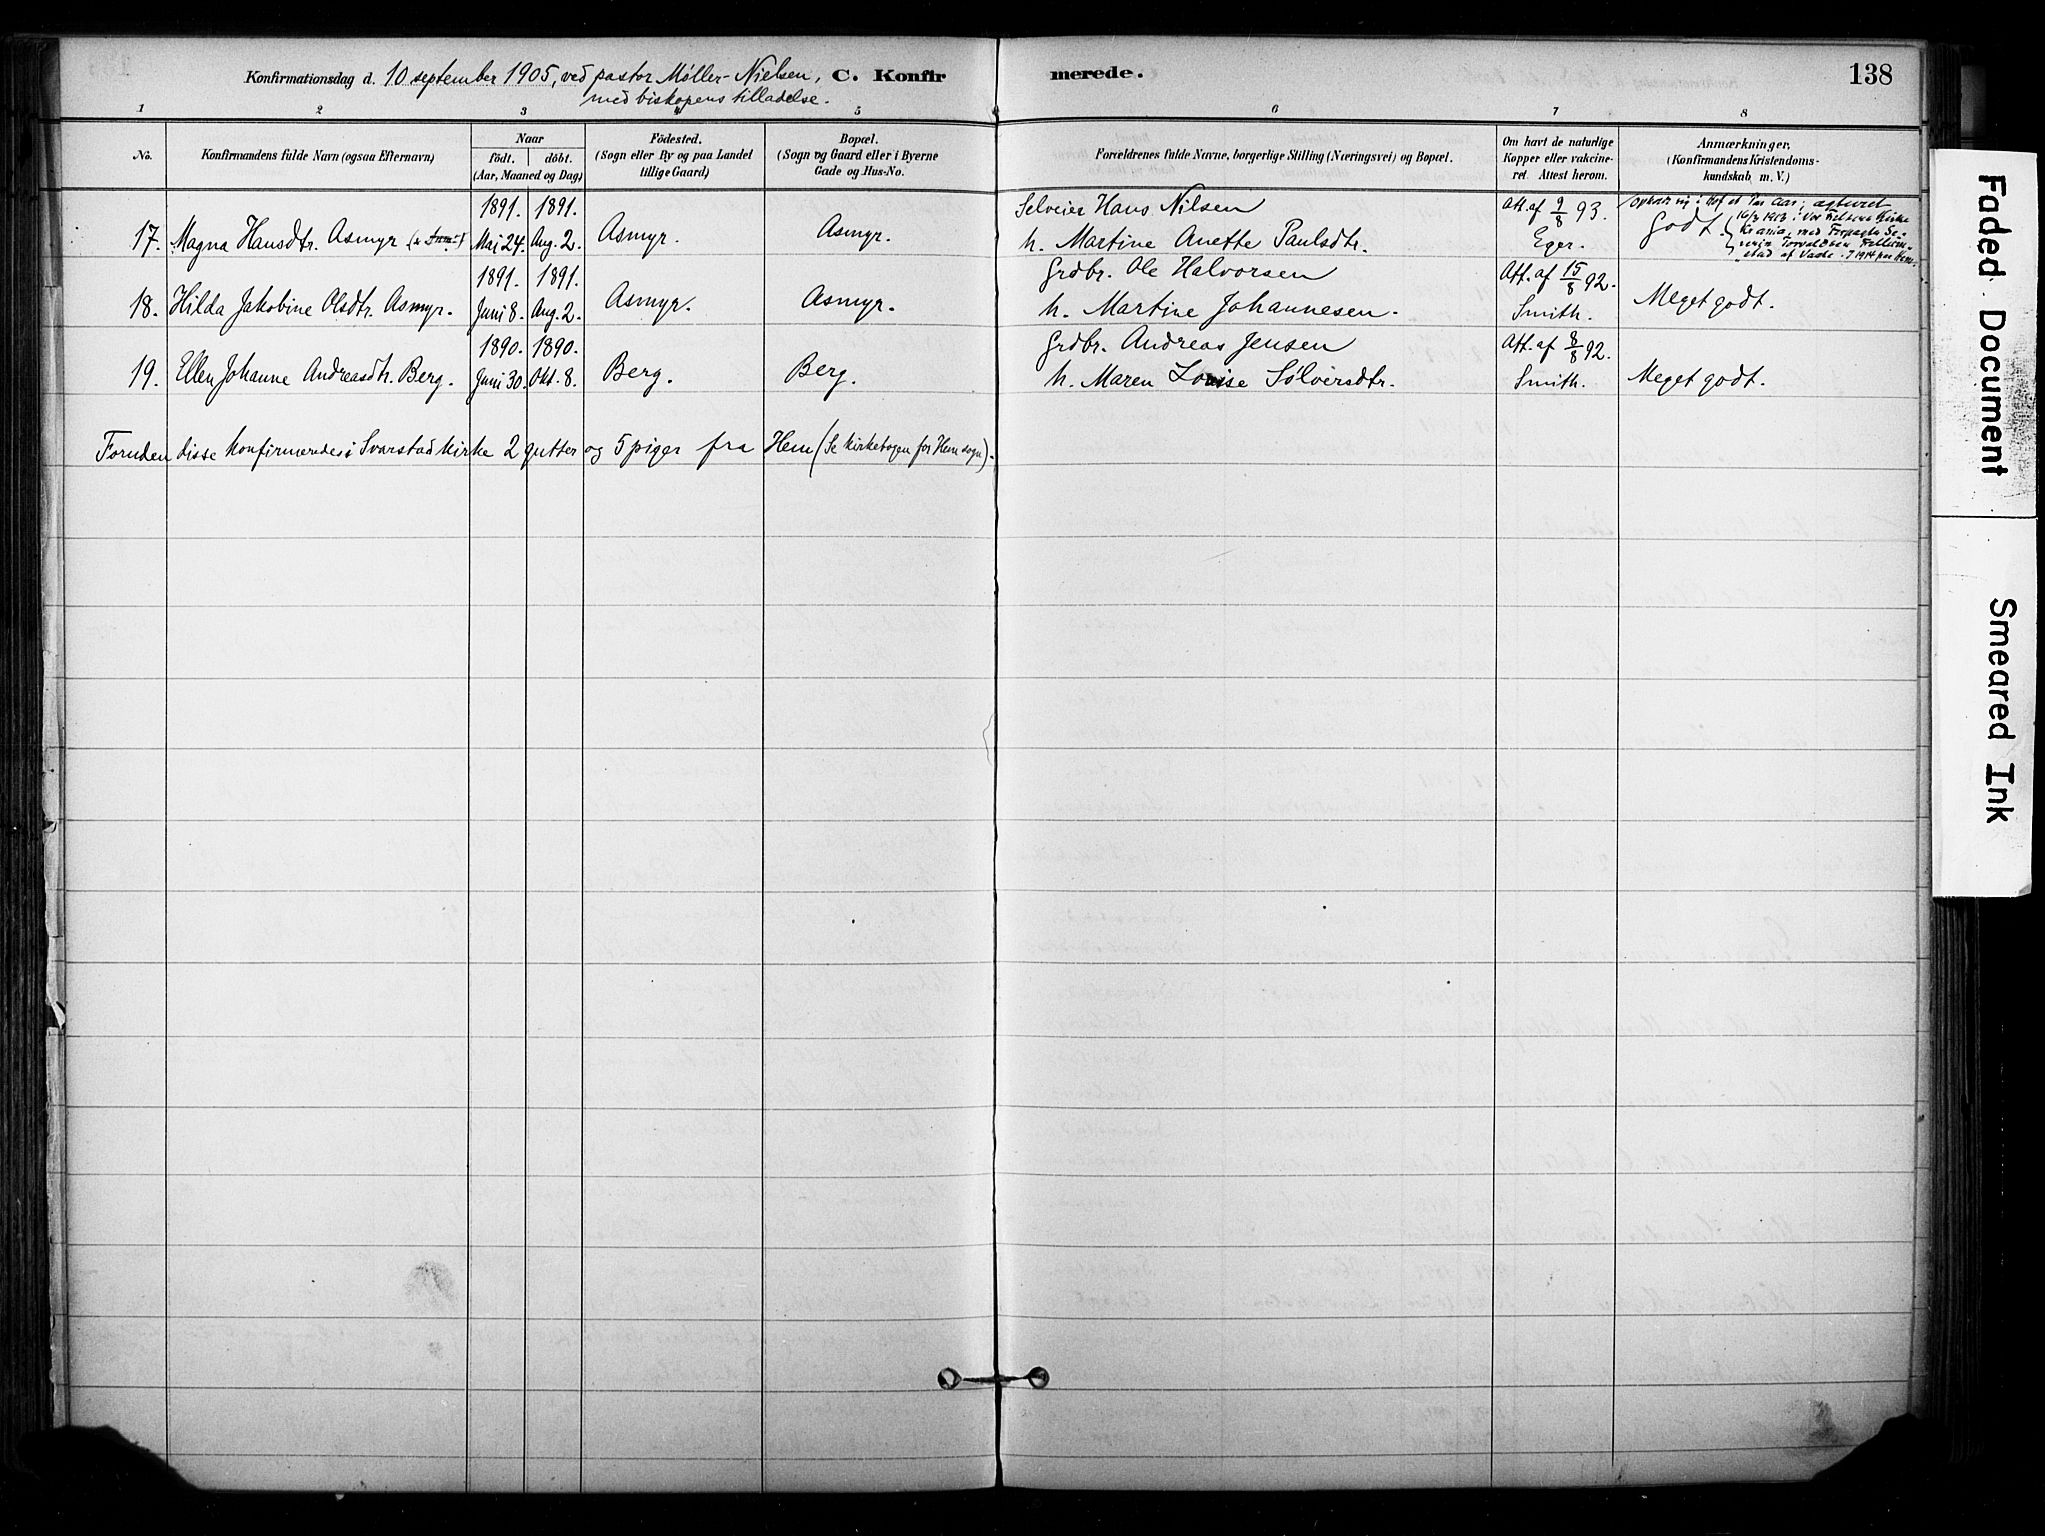 Konfirmationsdag d. 10 september 1905, ved pastor Møller-Nielsen, C. Konfirmerede. 138
med biskopens tilladelse.
1 2 3 4 5 6 7 8
No. Konfirmandens fulde Navn (ogsaa Efternavn) Naar Födested. Bopæl. Forældrenes fulde Navne, borgerlige Stilling (Næringsvei) og Bopæl. Om havt de naturlige Anmærkninger,
födt. döbt. (Sogn eller By og paa Landet (Sogn og Gaard eller i Byerne Kopper eller vakcine- (Konfirmandens Kristendoms-
(Aar, Maaned og Dag) tillige Gaard) Gade og Hus-No. ret. Attest herom. kundskab m. V.)
1891. 1891. Selveier Hans Nilsen Att. af 9/8 93.
17. Magna Hansdtr. Asmyr Mai 24. Aug. 2. Asmyr. Asmyr. h. Martine Anette Paulsdtr. Eger. Godt.
1891. 1891. Grdbr. Ole Halvorsen Att. af 15/8 92.
18. Hilda Jakobine Olsdtr. Asmyr. Juni 8. Aug. 2. Asmyr. Asmyr. h. Martine Johannesen. Smith. Meget godt.
1890. 1890. Grdbr. Andreas Jensen Att. af 8/8 92.
19. Ellen Johanne Andreasdtr. Berg. Juni 30. Okt. 8. Berg. Berg. h. Maren Louise Sølversdtr. Smith. Meget godt.
Foruden disse konfirmeredes i Svarstad kirke 2 gutter og 5 piger fra Hem (Se kirkebogen for Hem sogn).
Faded Document
Smeared Ink